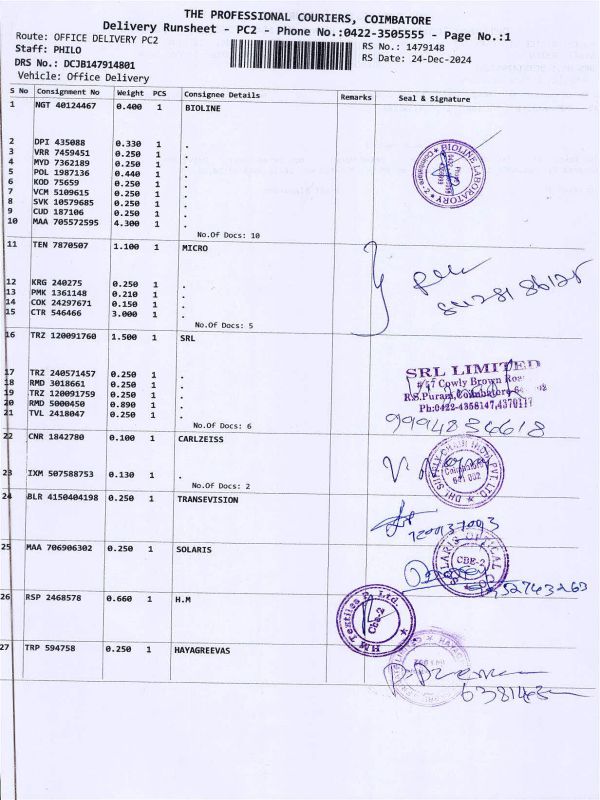 THE PROFESSIONAL COURIERS, COIMBATORE
Delivery Runsheet - PC2 - Phone No.:0422-3505555 - Page No.:1
Route: OFFICE DELIVERY PC2
RS No.: 1479148
Staff: PHILO
RS Date: 24-Dec-2024
DRS No.: DCJB147914801
Vehicle: Office Delivery
S No Consignment No Weight PCS Consignee Details Remarks Seal & Signature
1 NGT 40124467 0.400 1 BIOLINE
2 DPI 435088 0.330 1 .
3 VRR 7459451 0.250 1 .
4 MYD 7362189 0.250 1 .
5 POL 1987136 0.440 1 .
6 KOD 75659 0.250 1 .
7 VCM 5109615 0.250 1 .
8 SVK 10579685 0.250 1 .
9 CUD 187106 0.250 1 .
10 MAA 705572595 4.300 1 .
BIOLINE LABORATORY
No.Of Docs: 10
11 TEN 7870507 1.100 1 MICRO
12 KRG 240275 0.250 1 .
13 PMK 1361148 0.210 1 .
14 COK 24297671 0.150 1 .
15 CTR 546466 3.000 1 .
No.Of Docs: 5
16 TRZ 120091760 1.500 1 SRL
17 TRZ 240571457 0.250 1 .
18 RMD 3018661 0.250 1 .
19 TRZ 120091759 0.250 1 .
20 RMD 5000450 0.890 1 .
21 TVL 2418047 0.250 1 .
SRL LIMITED
#/57 Cowly Brown Road
R.S.Puram, Coimbatore
Ph:0422-4358147,
9994834618
No.Of Docs: 6
22 CNR 1842780 0.100 1 CARLZEISS
23 IXM 507588753 0.130 1 .
No.Of Docs: 2
DHL SUPPLY CHAIN INDIA PVT. LTD
Coimbatore
641 002
24 BLR 4150404198 0.250 1 TRANSEVISION
25 MAA 706906302 0.250 1 SOLARIS
CBE-2
26 RSP 2468578 0.660 1 H.M
HM Textiles P. Ltd.
Cbe-2
27 TRP 594758 0.250 1 HAYAGREEVAS